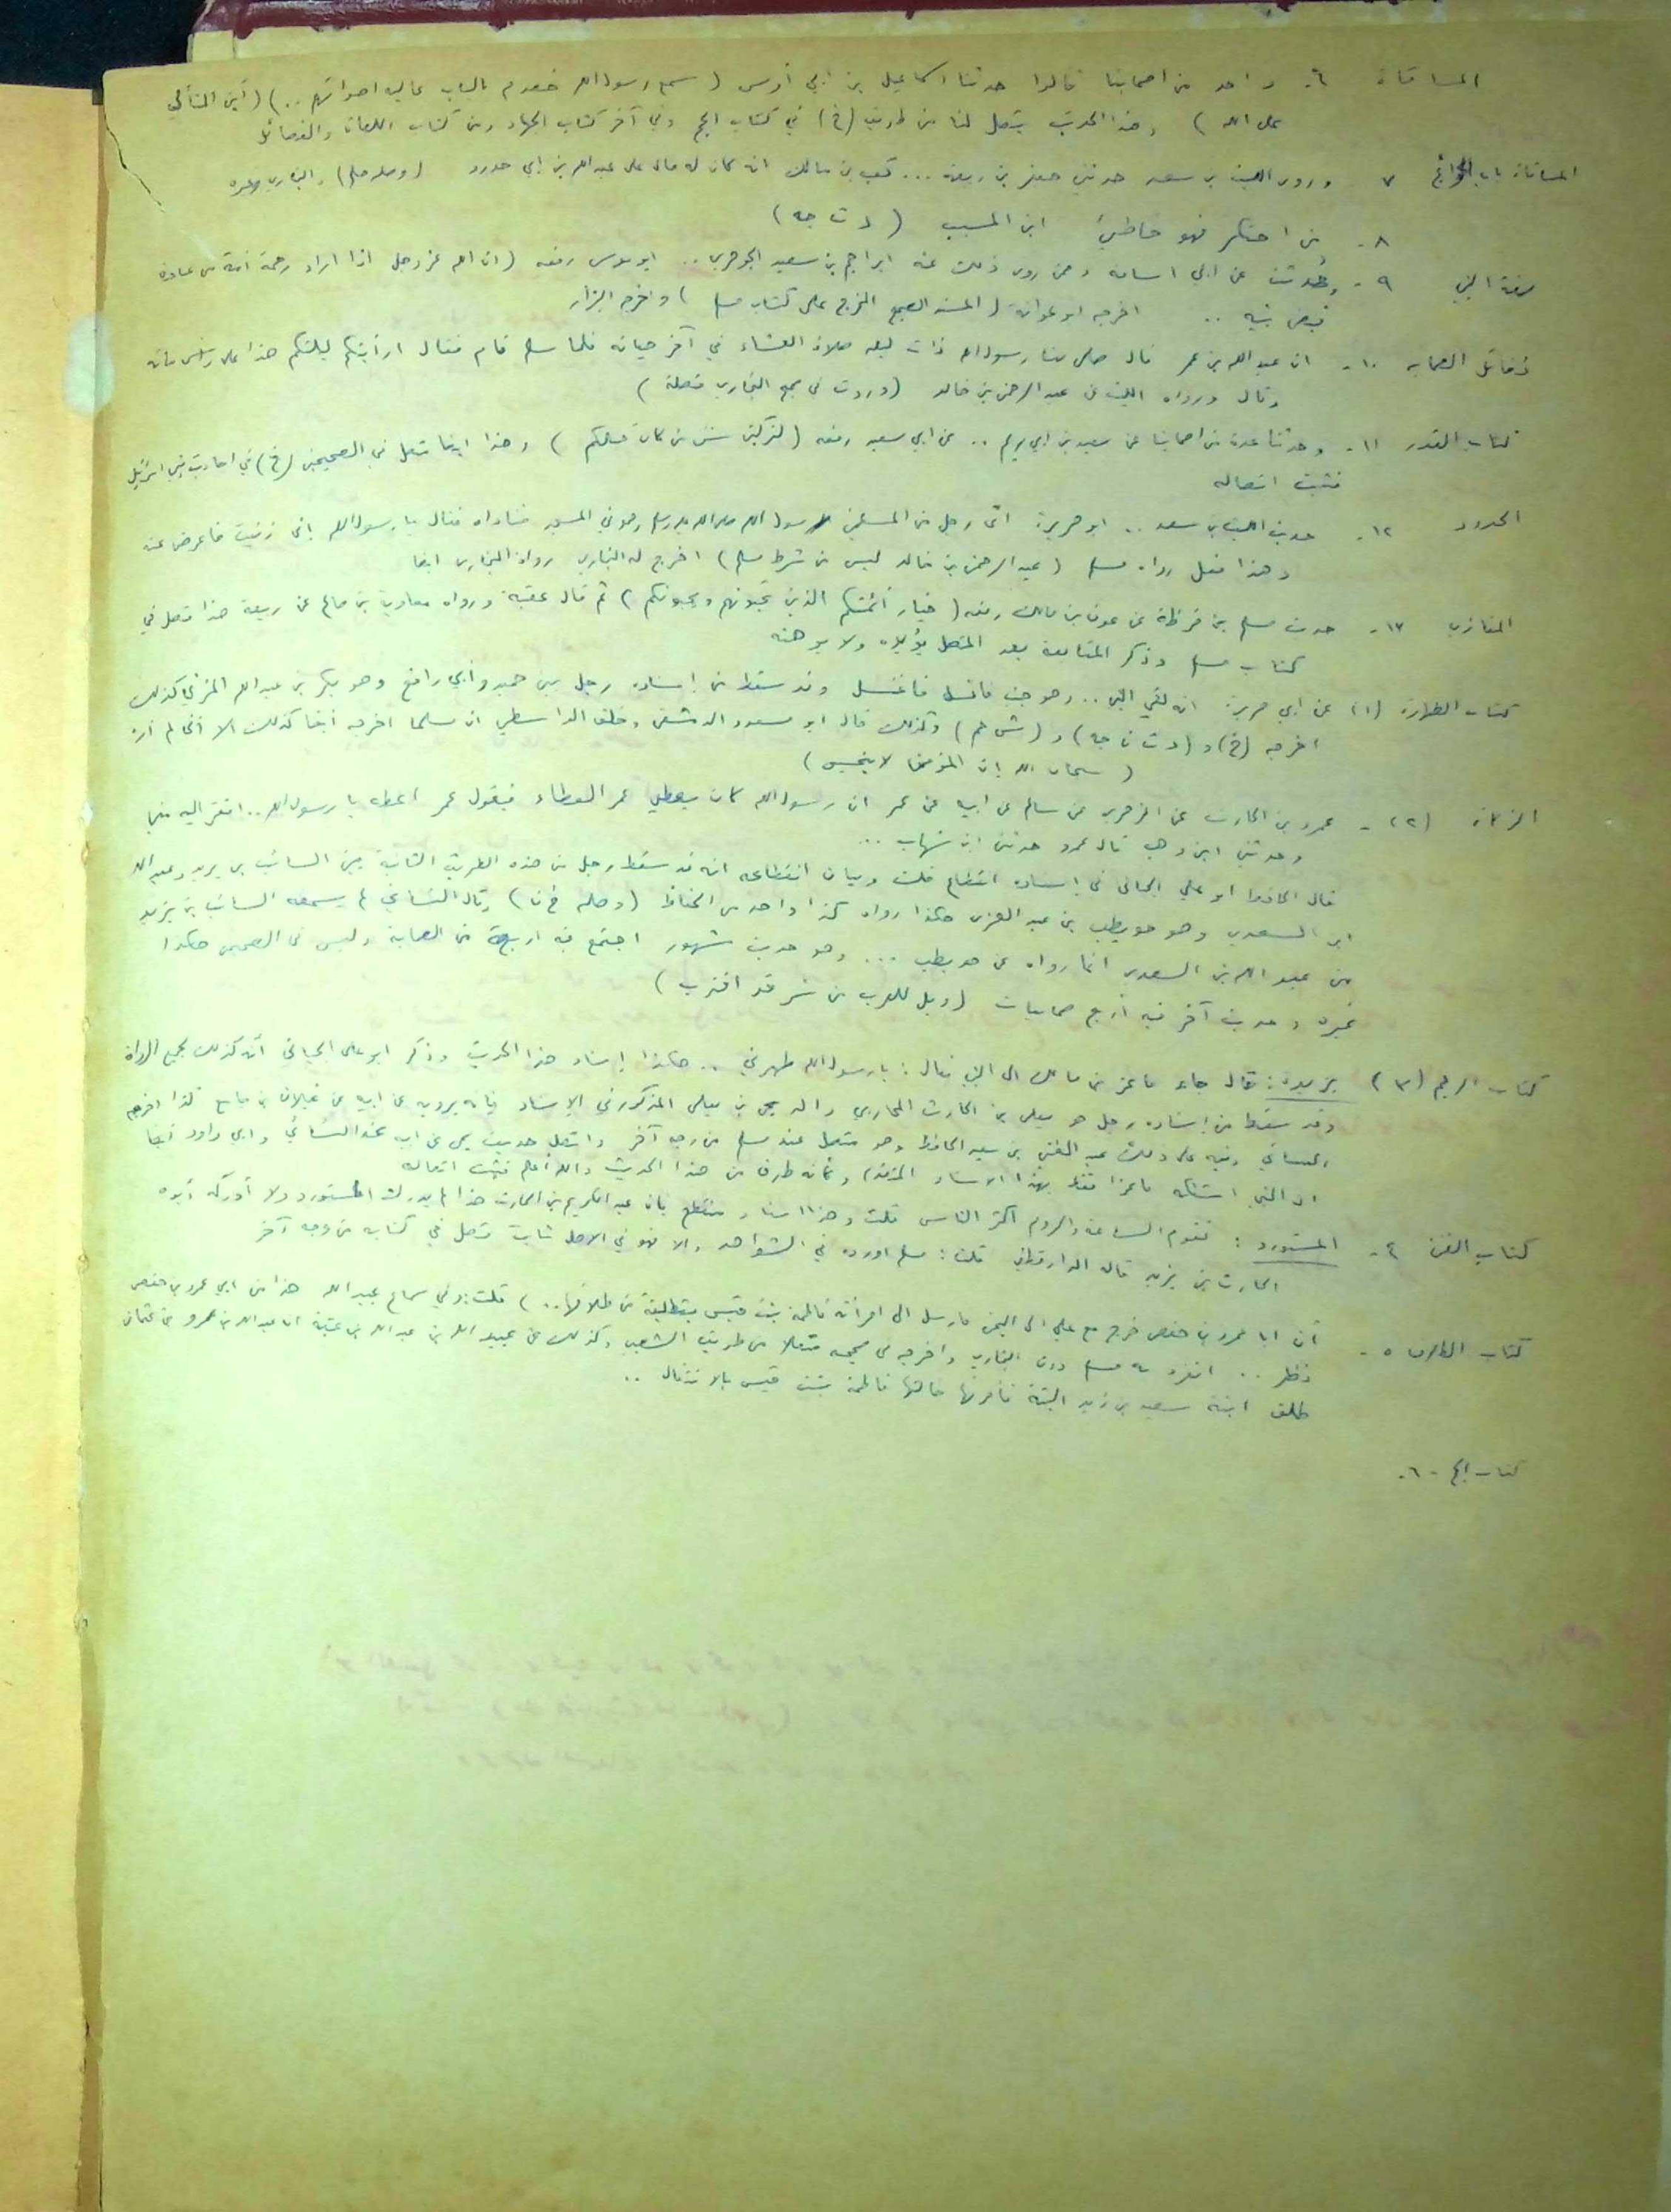 المساقاة ٦- واحد من اصحابنا قالوا حدثنا اسماعيل بن ابي أويس (سمع رسول الله خصوم بالباب عالية اصواتهم ..) (أين المتألي
على الله) وهذا الحديث يتصل لنا من طريق (خ) في كتاب الحج وفي آخر كتاب الجهاد ومن كتاب اللعان والفضائل
المساقاة باب الجوائح ٧ وروى الليث بن سعد حدثني جعفر بن ربيعة ... كعب بن مالك انه كان له مال على عبد الله بن ابي حدرد (وصله) والبخاري وغيره
٨- من احتكر فهو خاطئ ابن المسيب (د ت جه)
صفة النبي ٩- وحُدثت عن ابي اسامة وممن روى ذلك عنه ابراهيم بن سعيد الجوهري .. ابو موسى رفعه (ان الله عز وجل اذا اراد رحمة امة من عباده
قبض نبيه .. اخرجه ابو عوانة (المسند الصحيح المخرج على كتاب مسلم) واخرجه البزار
فضائل الصحابه ١٠- ان عبد الله بن عمر قال صلى بنا رسول الله ذات ليلة صلاة العشاء في آخر حياته فلما سلم قام فقال ارأيتكم ليلتكم هذا على رأس مائة
وقال ورواه الليث عن عبد الرحمن بن خالد (وردت في صحيح البخاري متصلة)
كتاب القدر ١١- وحدثنا عدة من اصحابنا عن سعيد بن ابي مريم .. عن ابي سعيد رفعه (لتركبن سنن من كان قبلكم) وهذا ايضا متصل في الصحيحين (خ) في احاديث بني اسرائيل
فثبت اتصاله
الحدود ١٢- حديث الليث بن سعد .. ابو هريرة اتى رجل من المسلمين رسول الله صلى الله عليه وسلم وهو في المسجد فناداه فقال يا رسول الله اني زنيت فاعرض عنه
وهذا متصل رواه مسلم (عبد الرحمن بن خالد ليس من شرط مسلم) اخرج له البخاري رواه البخاري ايضا
المغازي ١٣- حديث مسلم بن قرظة عن عوف بن مالك رفعه (خيار أئمتكم الذين تحبونهم ويحبونكم) ثم قال عقبه ورواه معاوية بن صالح عن ربيعة هذا متصل في
كتاب مسلم وذكر المتابعة بعد المتصل يؤيده ولا يوهنه
كتاب الطهارة (١) عن ابي هريرة انه لقي النبي .. وهو جنب فانسل فاغتسل وقد سقط من إسناده رجل بين حميد وأبي رافع وهو بكر بن عبد الله المزني كذلك
اخرجه (خ) و (د ت ن جه) و (ش حم) وكذلك قال ابو مسعود الدمشقي وخلف الواسطي ان مسلما اخرجه ايضا كذلك الا اني لم أره
(سبحان الله إن المؤمن لا ينجس)
الزكاة (٢)- عمرو بن الحارث عن الزهري عن سالم عن ابيه عن عمر ان رسول الله كان يعطي عمر العطاء فيقول عمر اعطه يا رسول الله .. افقر اليه مني
وحدثني ابن وهب قال عمرو حدثني ابن شهاب ...
قال الحافظ ابو علي الجياني في إسناده انقطاع قلت وبيان انقطاعه انه قد سقط رجل من هذه الطريق الثانية بين السائب بن يزيد وعبد الله
ابن السعدي وهو حويطب بن عبد العزى هكذا رواه كذا واحد من الحفاظ (وصله خ ن) وقال النسائي لم يسمعه السائب بن يزيد
من عبد الله بن السعدي انما رواه عن حويطب ... وهو حديث مشهور اجتمع فيه اربعة من الصحابة وليس في الصحيح هكذا
غيره وحديث آخر فيه أربع صحابيات (ويل للعرب من شر قد اقترب)
كتاب الرجم (٣) بريدة: قال جاء ماعز بن مالك الى النبي فقال: يا رسول الله طهرني .. هكذا إسناد هذا الحديث وذكر ابو علي الجياني أنه كذلك لجميع الرواة
وقد سقط من إسناده رجل هو يعلى بن الحارث المحاربي والد يحيى بن يعلى المذكور في الاسناد فإنه يرويه عن ابيه عن غيلان بن جامع كذا اخرجه
النسائي ونبه على ذلك عبد الغني بن سعيد الحافظ وهو متصل عند مسلم من وجه آخر واتصل حديث يحيى عن ابيه عند النسائي وابي داود أيضا
ان النبي استنكه ماعزا فقط بهذا الاسناد (المتقدم) وكأنه طرف من هذا الحديث والله أعلم فثبت اتصاله
كتاب الفتن ٤- المستورد: تقوم الساعة والروم اكثر الناس قلت وهذا اسناد منقطع بان عبد الكريم بن الحارث هذا لم يدرك المستورد ولا أدركه أبوه
الحارث بن يزيد قاله الدارقطني قلت: مسلم اورده في الشواهد والا فهو في الاصل ثابت متصل في كتابه من وجه آخر
كتاب الطلاق ٥- أن ابا عمرو بن حفص خرج مع علي الى اليمن فارسل الى امرأته فاطمة بنت قيس بتطليقة من طلاقها ..) قلت: وفي سماع عبيد الله هذا من ابي عمرو بن حفص
نظر .. انفرد به مسلم دون البخاري واخرجه في صحيحه متصلا من طريق الشعبي وكذلك عن عبيد الله بن عبد الله بن عتبة ان عبد الله بن عمرو بن عثمان
طلق ابنة سعيد بن زيد البتة فأمرتها خالتها فاطمة بنت قيس بالانتقال ..
كتاب الحج ٦-